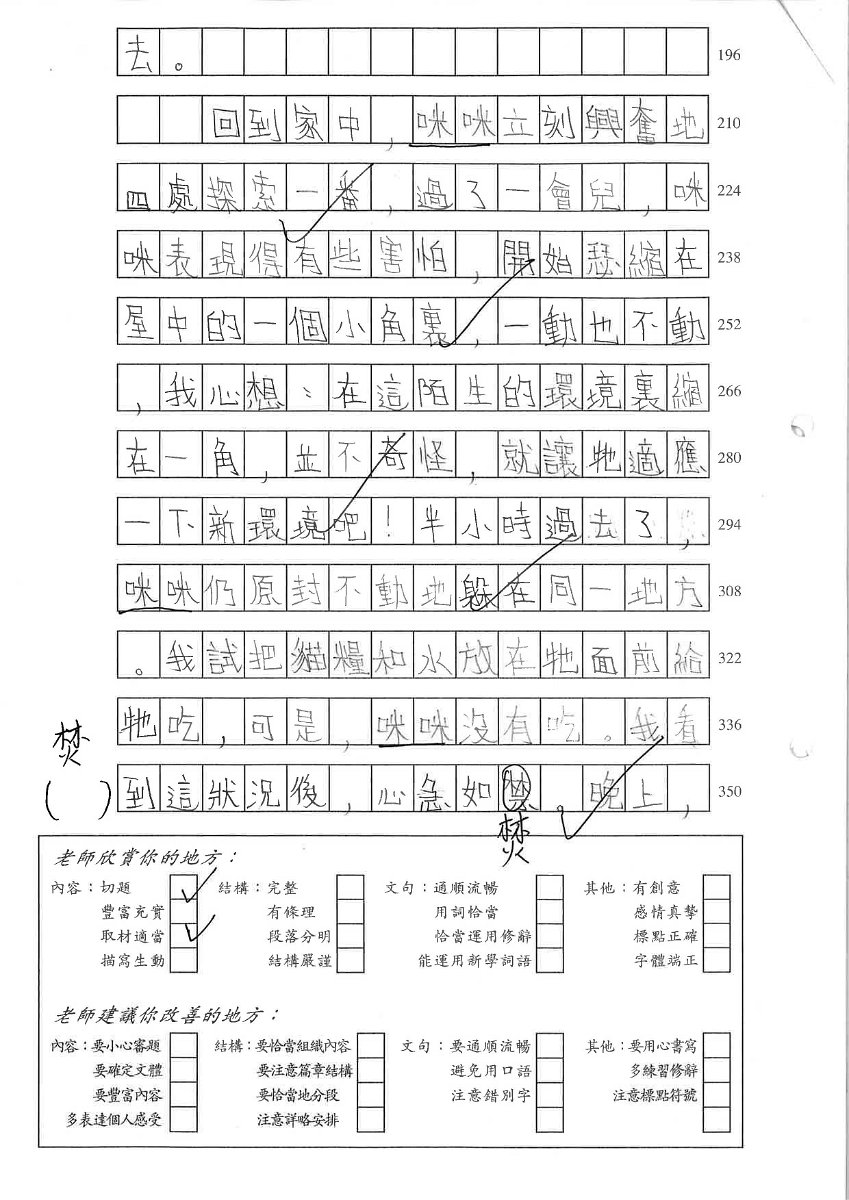 去。 196
回到家中,咪咪立刻興奮地 210
四處探索一番,過了一會兒,咪 224
咪表現得有些害怕,開始瑟縮在 238
屋中的一個小角裏,一動也不動 252
,我心想:在這陌生的環境裏縮 266
在一角,並不奇怪,就讓牠適應 280
一下新環境吧!半小時過去了, 294
咪咪仍原封不動地躲在同一地方 308
。我試把貓糧和水放在牠面前給 322
牠吃,可是,咪咪沒有吃。我看 336
焚
( ) 到這狀況後,心急如禁。晚上, 350
焚
老師欣賞你的地方:
內容:切題 結構:完整 文句:通順流暢 其他:有創意
豐富充實 有條理 用詞恰當 感情真摯
取材適當 段落分明 恰當運用修辭 標點正確
描寫生動 結構嚴謹 能運用新學詞語 字體端正
老師建議你改善的地方:
內容:要小心審題 結構:要恰當組織內容 文句:要通順流暢 其他:要用心書寫
要確定文體 要注意篇章結構 避免用口語 多練習修辭
要豐富內容 要恰當地分段 注意錯別字 注意標點符號
多表達個人感受 注意詳略安排